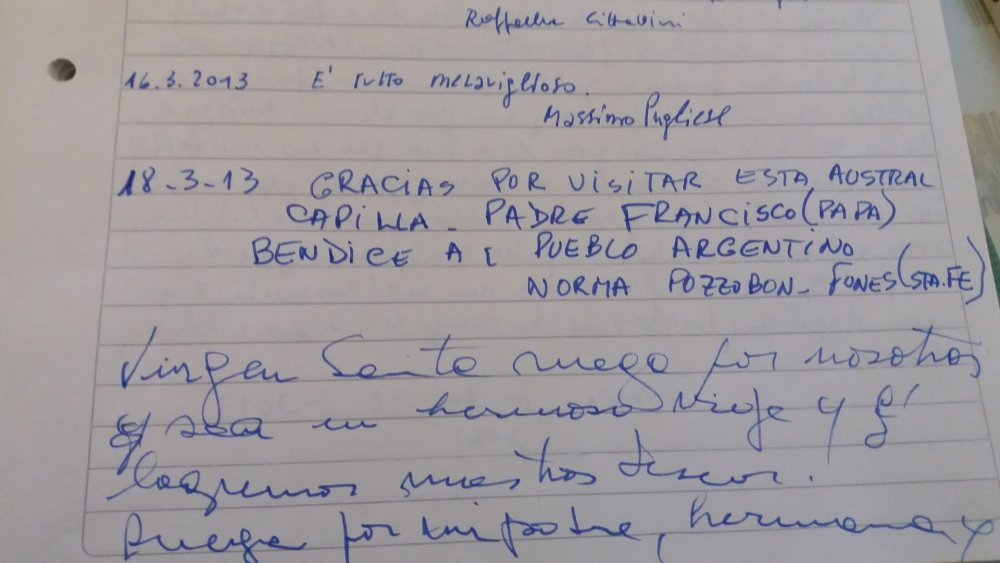 Raffaella Cittadini
16.3.2013 E' tutto meraviglioso.
Massimo Pugliese
18-3-13 GRACIAS POR VISITAR ESTA AUSTRAL
CAPILLA. PADRE FRANCISCO (PAPA)
BENDICE A L PUEBLO ARGENTINO
NORMA POZZOBON - FONES (STA. FE)
Virgen Santa ruega por nosotros
sea un hermoso viaje y q'
logremos nuestros deseos.
Ruega por mi padre, hermana y